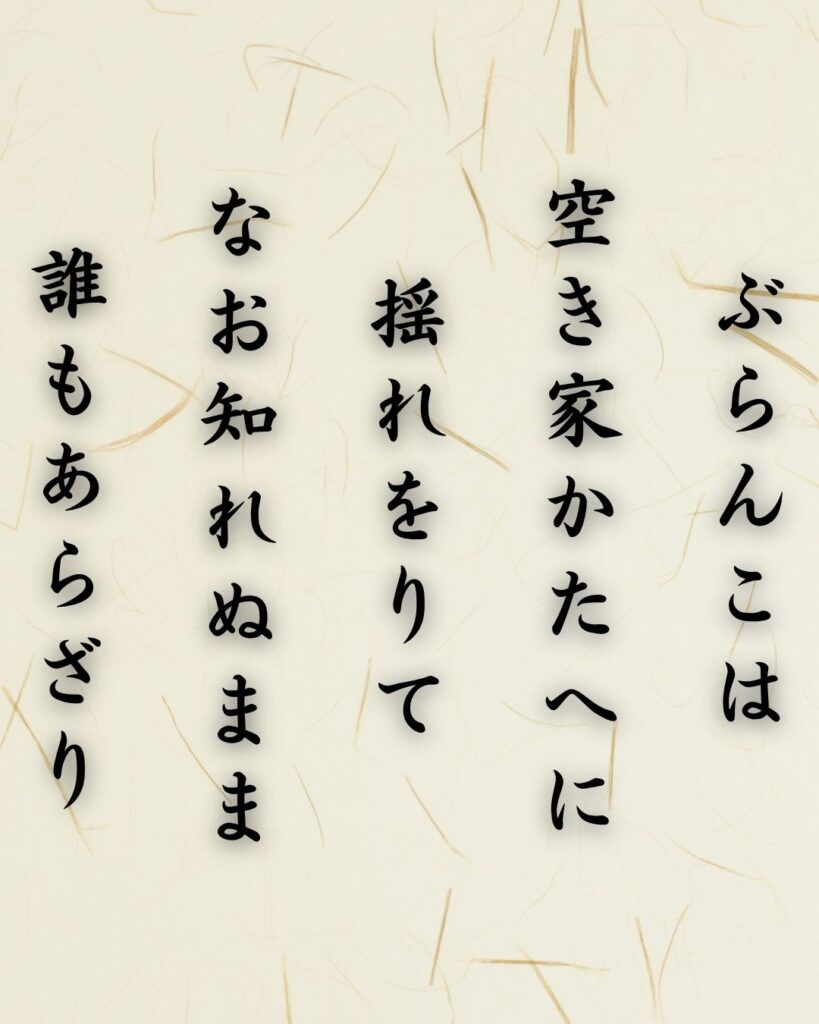 ぶらんこは
空き家かたへに
揺れをりて
なお知れぬまま
誰もあらざり